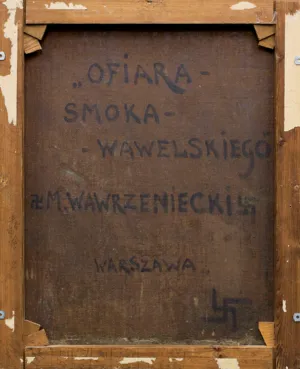 „OFIARA-
SMOKA-
-WAWELSKIEGO
M. WAWRZENIECKI
WARSZAWA